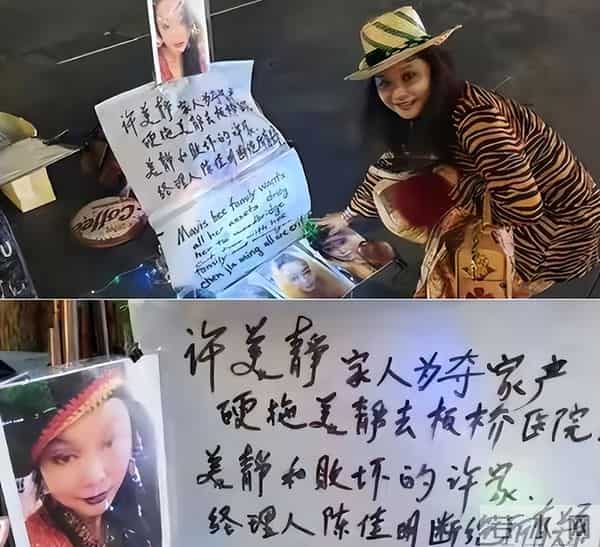 许美静家人为夺家产
硬拖美静去板桥医院
美静和败坏的许家
经理人陈佳明断绝所有
Mavis hee family wants
all her assets drag
her to woodbridge
family with hee
chen jia ming all are evil
Coffee
许美静 家人为夺家产
硬拖美静去板桥医院.
美静和败坏的许家.
经理人陈佳明断绝所有